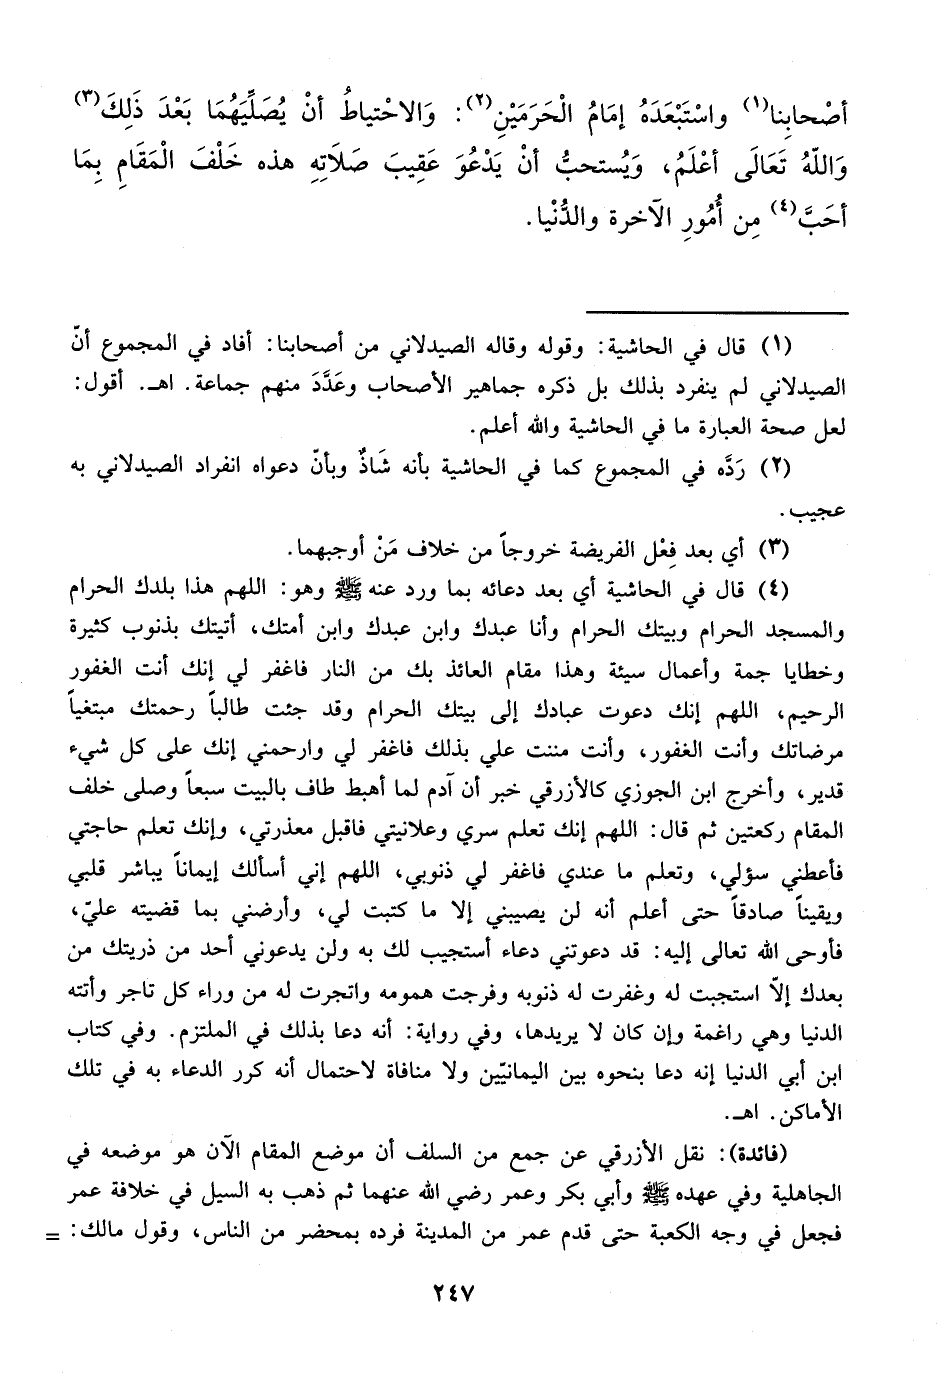 أصْحابِنا(١) واسْتَبْعَدَهُ إمَامُ الْحَرَمَيْنِ(٢): وَالاحْتياطُ أنْ يُصَلِّيَهُمَا بَعْدَ ذَلِكَ(٣)
وَاللّهُ تَعَالَى أعْلَمُ، وَيُستحبُّ أنْ يَدْعُوَ عَقِيبَ صَلاتِهِ هذه خَلْفَ الْمَقَامِ بِمَا
أحَبَّ(٤) مِن أُمُورِ الآخرة والدُّنْيا.
(١) قال في الحاشية: وقوله وقاله الصيدلاني من أصحابنا: أفاد في المجموع أنّ
الصيدلاني لم ينفرد بذلك بل ذكره جماهير الأصحاب وعَدَّدَ منهم جماعة. اهـ. أقول:
لعل صحة العبارة ما في الحاشية والله أعلم.
(٢) رَدَّه في المجموع كما في الحاشية بأنه شَاذٌ وبأنّ دعواه انفراد الصيدلاني به
عجيب.
(٣) أي بعد فِعْل الفريضة خروجاً من خلاف مَنْ أوجبهما.
(٤) قال في الحاشية أي بعد دعائه بما ورد عنه ﷺ وهو: اللهم هذا بلدك الحرام
والمسجد الحرام وبيتك الحرام وأنا عبدك وابن عبدك وابن أمتك، أتيتك بذنوب كثيرة
وخطايا جمة وأعمال سيئة وهذا مقام العائذ بك من النار فاغفر لي إنك أنت الغفور
الرحيم، اللهم إنك دعوت عبادك إلى بيتك الحرام وقد جئت طالباً رحمتك مبتغياً
مرضاتك وأنت الغفور، وأنت مننت علي بذلك فاغفر لي وارحمني إنك على كل شيء
قدير، وأخرج ابن الجوزي كالأزرقي خبر أن آدم لما أهبط طاف بالبيت سبعاً وصلى خلف
المقام ركعتين ثم قال: اللهم إنك تعلم سري وعلانيتي فاقبل معذرتي، وإنك تعلم حاجتي
فأعطني سؤلي، وتعلم ما عندي فاغفر لي ذنوبي، اللهم إني أسألك إيماناً يباشر قلبي
ويقيناً صادقاً حتى أعلم أنه لن يصيبني إلا ما كتبت لي، وأرضني بما قضيته عليّ،
فأوحى الله تعالى إليه: قد دعوتني دعاء أستجيب لك به ولن يدعوني أحد من ذريتك من
بعدك إلاّ استجبت له وغفرت له ذنوبه وفرجت همومه واتجرت له من وراء كل تاجر وأتته
الدنيا وهي راغمة وإن كان لا يريدها، وفي رواية: أنه دعا بذلك في الملتزم. وفي كتاب
ابن أبي الدنيا إنه دعا بنحوه بين اليمانيّين ولا منافاة لاحتمال أنه كرر الدعاء به في تلك
الأماكن. اهـ.
(فائدة): نقل الأزرقي عن جمع من السلف أن موضع المقام الآن هو موضعه في
الجاهلية وفي عهده ﷺ وأبي بكر وعمر رضي الله عنهما ثم ذهب به السيل في خلافة عمر
فجعل في وجه الكعبة حتى قدم عمر من المدينة فرده بمحضر من الناس، وقول مالك: =
٢٤٧